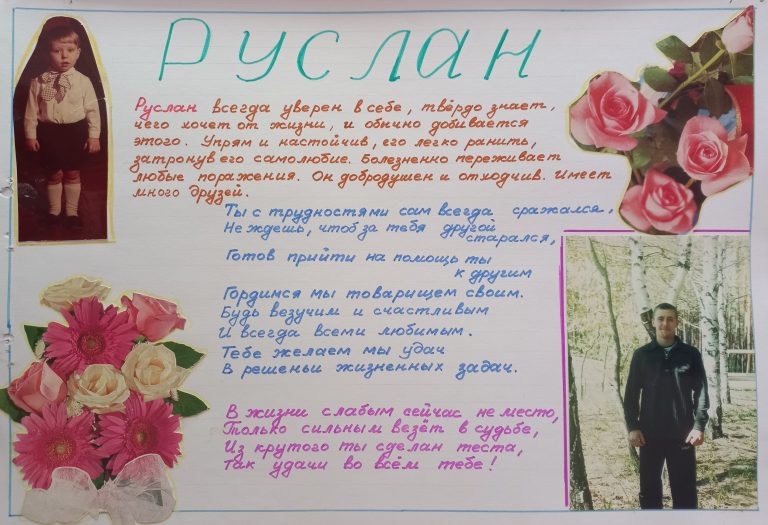 Руслан
Руслан всегда уверен в себе, твёрдо знает,
чего хочет от жизни, и обычно добивается
этого. Упрям и настойчив, его легко ранить,
затронув его самолюбие. Болезненно переживает
любые поражения. Он добродушен и отходчив. Имеет
много друзей.
Ты с трудностями сам всегда сражался,
Не ждешь, чтоб за тебя другой
старался,
Готов прийти на помощь ты
к другим
Гордимся мы товарищем своим.
Будь везучим и счастливым
И всегда всеми любимым.
Тебе желаем мы удач
В решеньи жизненных задач.
В жизни слабым сейчас не место,
Только сильным везёт в судьбе,
Из крутого ты сделан теста,
Так удачи во всём тебе!